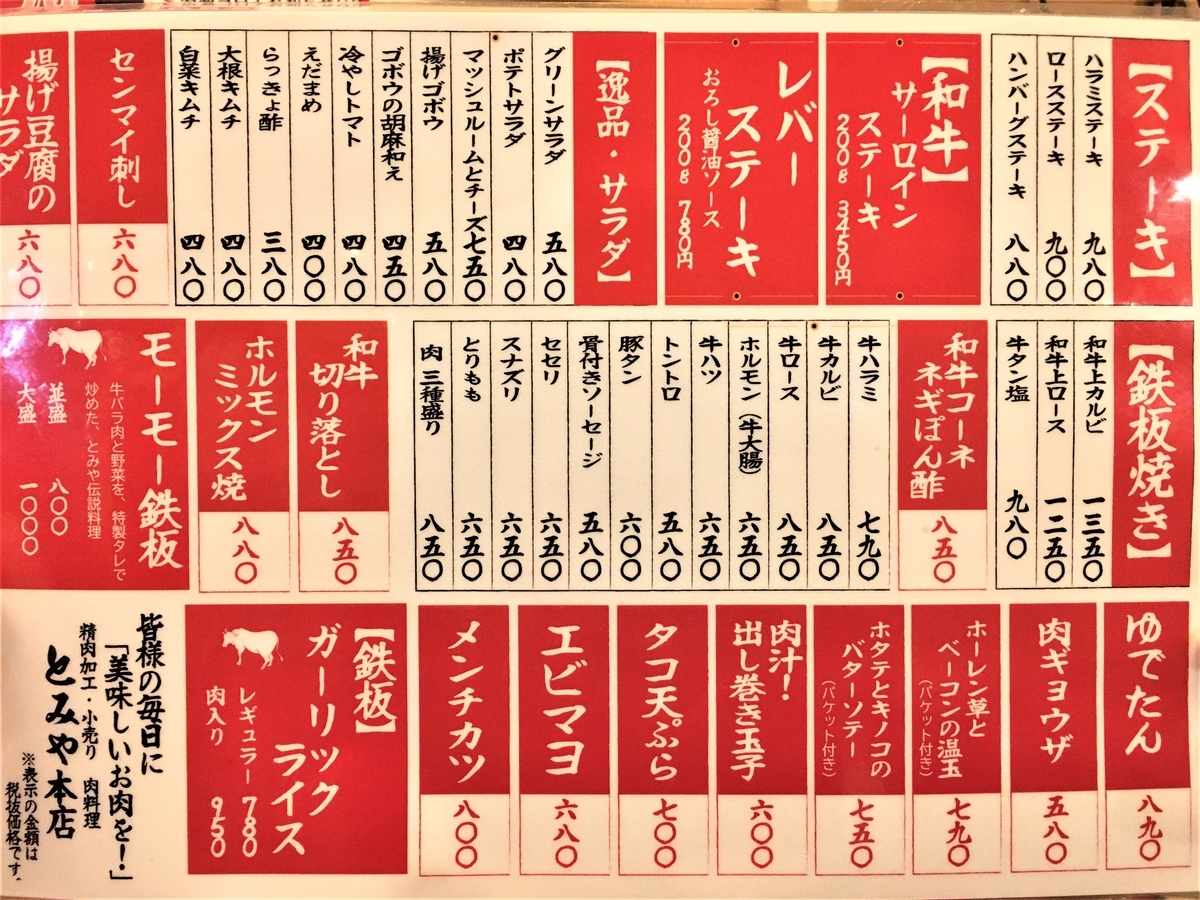 【ステーキ】
ハラミステーキ 九八〇
ロースステーキ 九〇〇
ハンバーグステーキ 八八〇
【和牛】
サーロイン
ステーキ
200g 3450円
レバー
ステーキ
おろし醤油ソース
200g 780円
【逸品・サラダ】
グリーンサラダ 五八〇
ポテトサラダ 四八〇
マッシュルームとチーズ 七五〇
揚げゴボウ 五八〇
ゴボウの胡麻和え 四五〇
冷やしトマト 四八〇
えだまめ 四〇〇
らっきょ酢 三八〇
大根キムチ 四八〇
白菜キムチ 四八〇
センマイ刺し 六八〇
揚げ豆腐の
サラダ
六八〇
【鉄板焼き】
和牛上カルビ 一三五〇
和牛上ロース 一二五〇
牛タン塩 九八〇
和牛コーネ
ネギぽん酢
八五〇
牛ハラミ 七九〇
牛カルビ 八五〇
牛ロース 八五〇
ホルモン(牛大腸) 六五〇
牛ハツ 六五〇
トントロ 五八〇
豚タン 六〇〇
骨付きソーセージ 五八〇
セセリ 六五〇
スナズリ 六五〇
とりもも 六五〇
肉三種盛り 八五〇
和牛
切り落とし
八五〇
ホルモン
ミックス焼
八八〇
モーモー鉄板
牛バラ肉と野菜を、特製タレで
炒めた、とみや伝説料理
並盛 八〇〇
大盛 一〇〇〇
ゆでたん 八九〇
肉ギョウザ 五八〇
ホーレン草と
ベーコンの温玉
(バケット付き)
七九〇
ホタテとキノコの
バターソテー
(バケット付き)
七五〇
肉汁!
出し巻き玉子
六〇〇
タコ天ぷら 七〇〇
エビマヨ 六八〇
メンチカツ 八〇〇
【鉄板】
ガーリック
ライス
レギュラー 780
肉入り 950
皆様の毎日に
「美味しいお肉を!」
精肉加工・小売り 肉料理
とみや本店
※表示の金額は
税抜価格です。